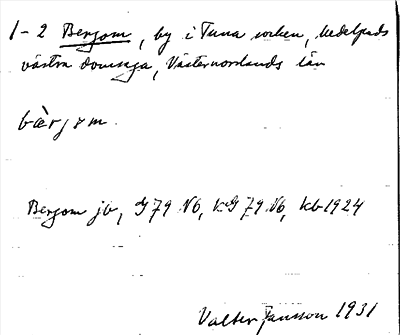 1-2 Bergom, by i Tuna socken, Medelpads
västra domsaga, Västernorrlands län
bàrjom.
Bergom jb, G 79 N6, KG 79 N6, kb 1924
Valter Jansson 1931